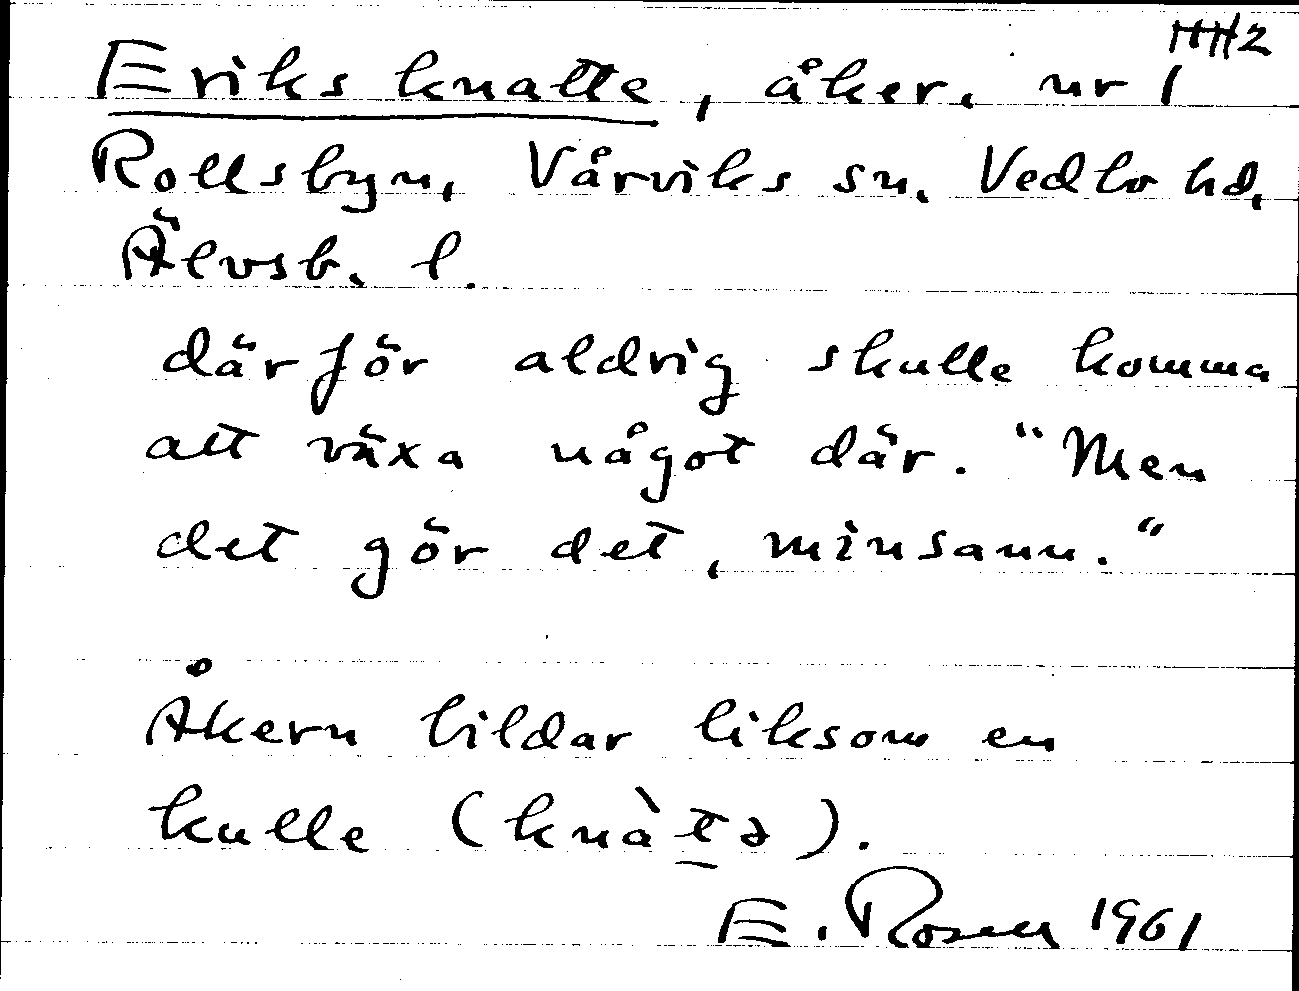 Eriks knatte, åker. nr 1
Rollsbyn, Vårviks sn. Vedbo hd,
Älvsb. l.
därför aldrig skulle komma
att växa något där. "Men
det gör det, minsann."
Åkern bildar liksom en
kulle (knàtə).
E. Rosen 1961